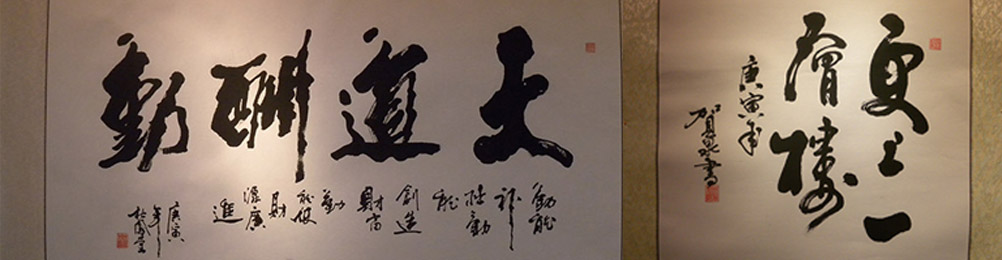 天道酬勤
勤能
补
拙勤
能
創造
財富
勤
能使
財
源廣
進
庚寅
年
更上一
層樓
庚寅年
書